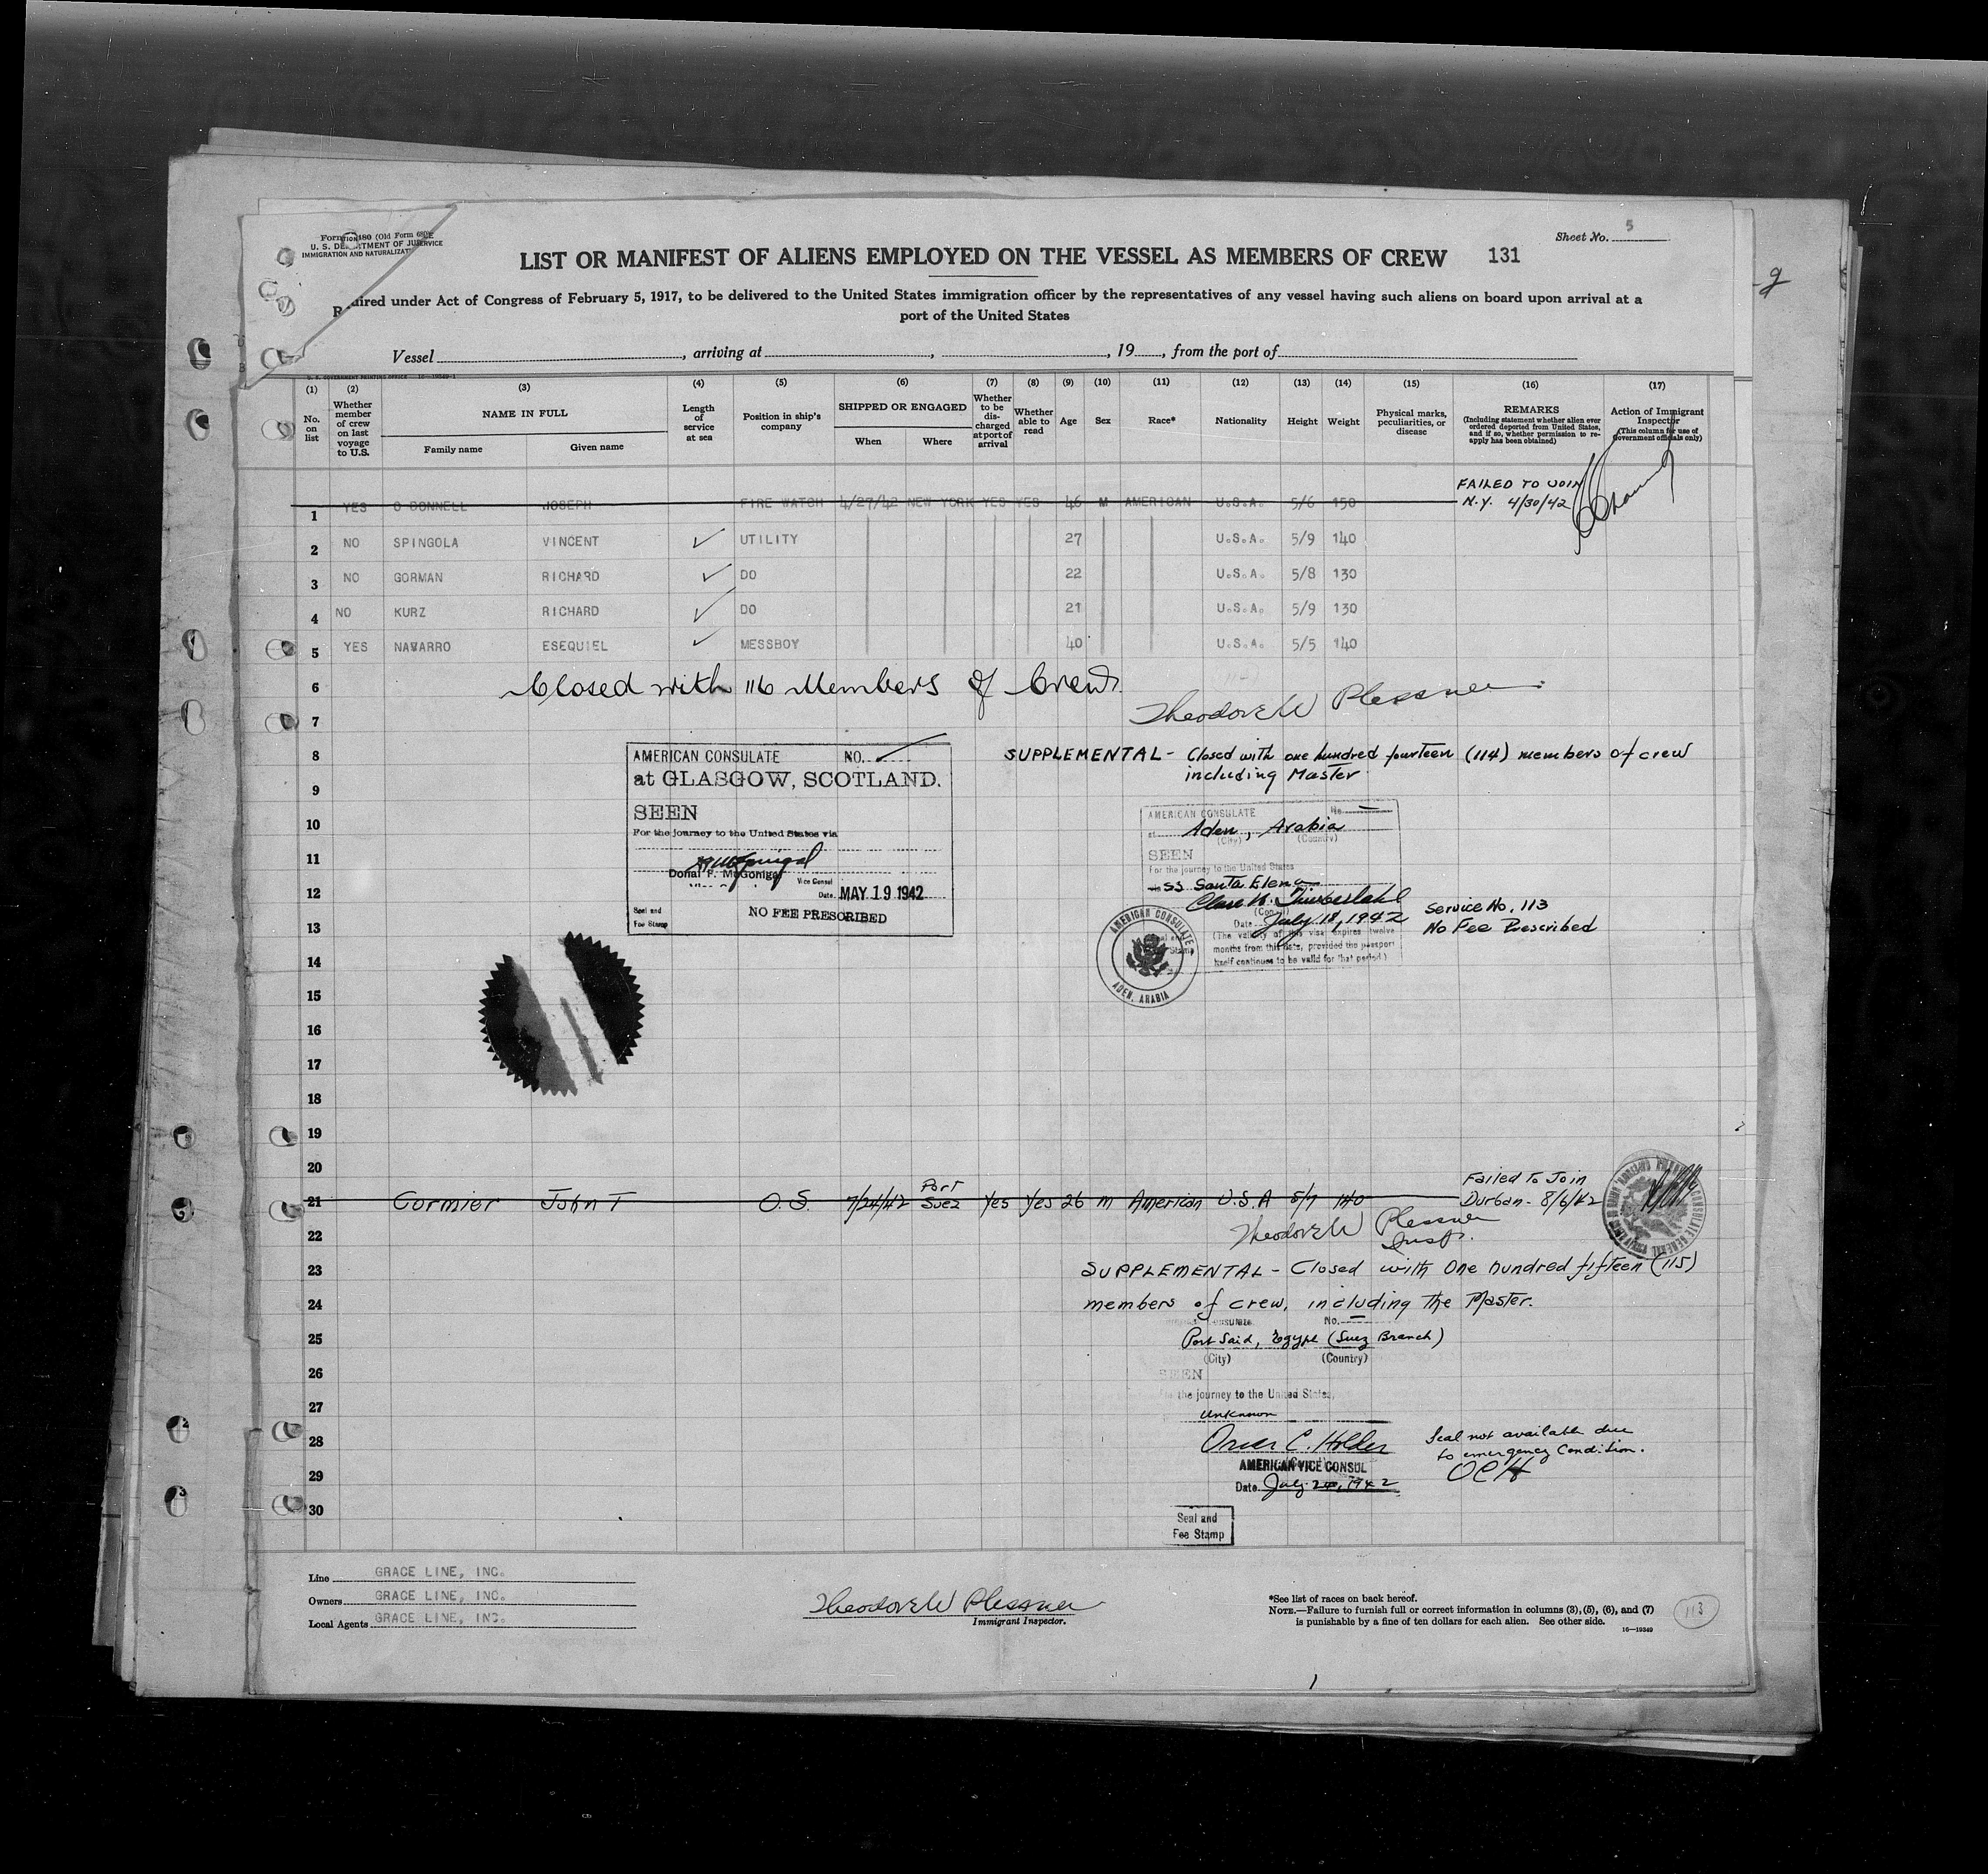 Sheet No. 5
Form 480 (Old Form 680)
U. S. DEPARTMENT OF JUSTICE
IMMIGRATION AND NATURALIZATION SERVICE
LIST OR MANIFEST OF ALIENS EMPLOYED ON THE VESSEL AS MEMBERS OF CREW 131
Required under Act of Congress of February 5, 1917, to be delivered to the United States immigration officer by the representatives of any vessel having such aliens on board upon arrival at a
port of the United States
Vessel, arriving at, , 19, from the port of
U. S. GOVERNMENT PRINTING OFFICE 16—19349-1
(1) (2) (3) (4) (5) (6) (7) (8) (9) (10) (11) (12) (13) (14) (15) (16) (17)
No. on list
Whether member of crew on last voyage to U.S.
NAME IN FULL
Family name
Given name
Length of service at sea
Position in ship's company
SHIPPED OR ENGAGED
When
Where
Whether to be discharged at port of arrival
Whether able to read
Age
Sex
Race*
Nationality
Height
Weight
Physical marks, peculiarities, or disease
REMARKS
(Including statement whether alien ever ordered deported from United States, and if so, whether permission to reapply has been obtained)
Action of Immigrant Inspector
(This column for use of Government officials only)
FAILED TO JOIN
N.Y. 4/30/42
1 YES O DONNELL JOSEPH FIRE WATCH 4/27/42 NEW YORK YES YES 46 M AMERICAN U.S.A. 5/6 150
2 NO SPINGOLA VINCENT ✓ UTILITY 27 U.S.A. 5/9 140
3 NO GORMAN RICHARD ✓ DO 22 U.S.A. 5/8 130
4 NO KURZ RICHARD ✓ DO 21 U.S.A. 5/9 130
5 YES NAVARRO ESEQUIEL ✓ MESSBOY 40 U.S.A. 5/5 140
6 Closed with 116 Members of Crew
7 Theodore W Plessner
8 SUPPLEMENTAL - Closed with one hundred fourteen (114) members of crew
including Master
9
10
11
12
13
14
15
16
17
18
19
20
AMERICAN CONSULATE NO.
at GLASGOW, SCOTLAND.
SEEN
For the journey to the United States via
Donal F. McGonigal
Vice Consul
Date MAY 19 1942
Seal and
Fee Stamp
NO FEE PRESCRIBED
AMERICAN CONSULATE No. —
at Aden, Arabia
(City) (Country)
SEEN
For the journey to the United States
via SS Santa Elena
Clare H. Timberlake
(Consul)
Date July 18, 1942
(The validity of this visa expires twelve
months from this date, provided the passport
itself continues to be valid for that period.)
Service No. 113
No Fee Prescribed
AMERICAN CONSULATE
ADEN, ARABIA
Failed To Join
Durban - 8/6/42
21 Cormier John T O.S. 7/24/42 Port Suez Yes Yes 26 M American U.S.A 5/7 140
22 Theodore W Plessner
Insp.
23 SUPPLEMENTAL - Closed with One hundred fifteen (115)
24 members of crew, including the Master.
No. —
25 Port Said, Egypt (Suez Branch)
(City) (Country)
26 SEEN
27 the journey to the United States,
Unknown
28 Omar C. Holder
29 AMERICAN VICE CONSUL
Date July 24, 1942
30
Seal not available due
to emergency Condition.
OCH
Seal and
Fee Stamp
Line GRACE LINE, INC.
Owners GRACE LINE, INC.
Local Agents GRACE LINE, INC.
Theodore W Plessner
Immigrant Inspector.
*See list of races on back hereof.
NOTE.—Failure to furnish full or correct information in columns (3), (5), (6), and (7)
is punishable by a fine of ten dollars for each alien. See other side.
16—19349
113